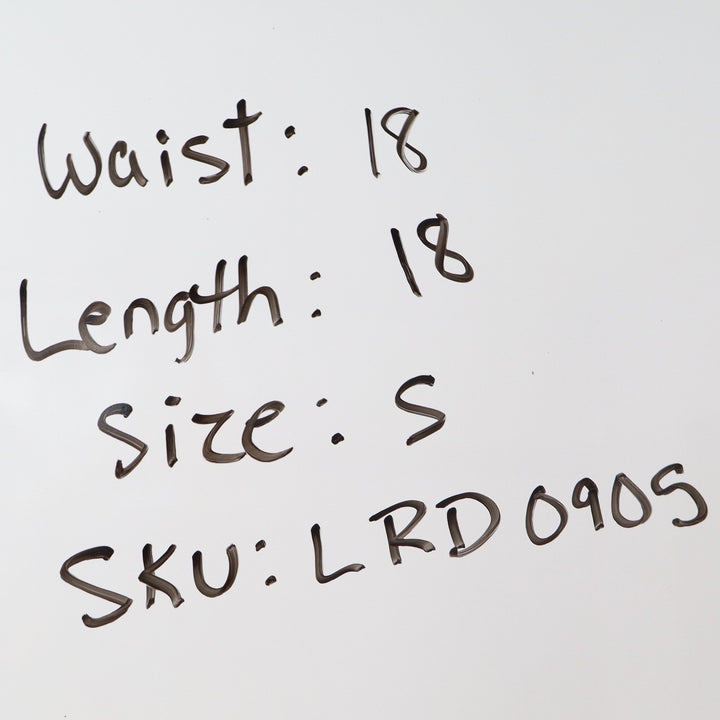 Waist: 18
Length: 18
Size: S
SKU: LRD0905